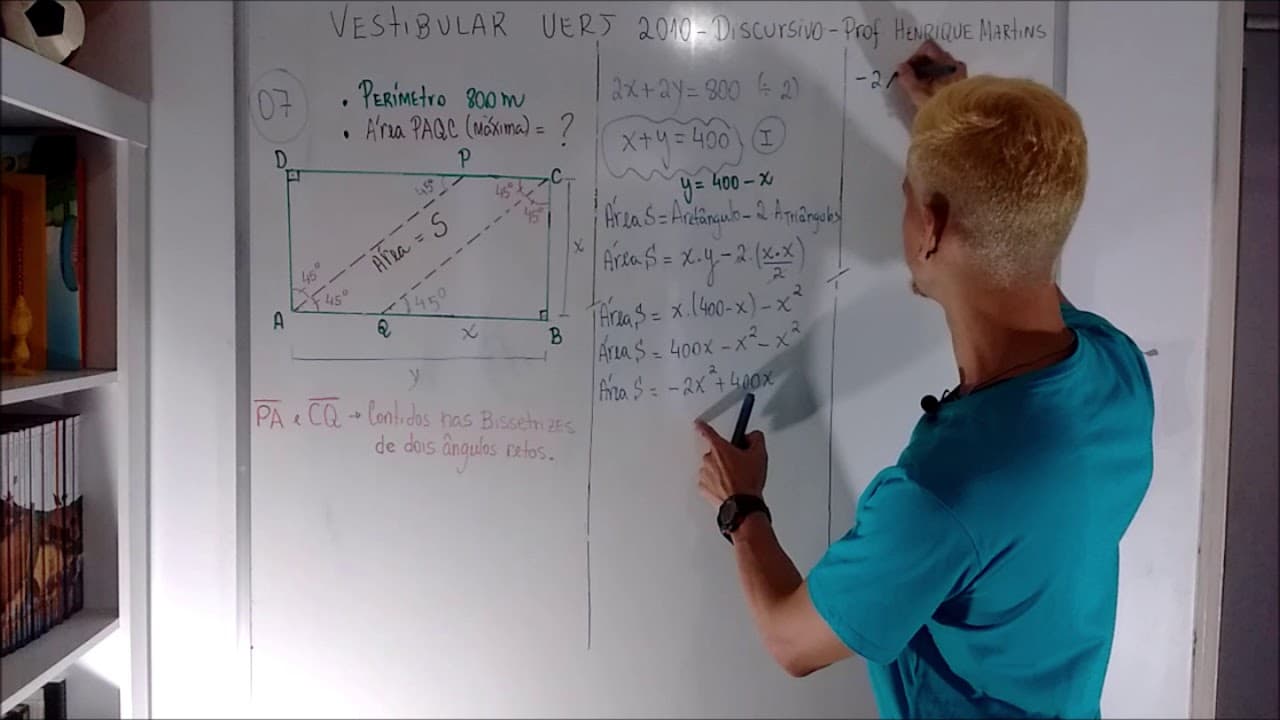 VESTIBULAR UERJ 2010 - DISCURSIVO - Prof HENRIQUE MARTINS
07
• PERÍMETRO 800m
• ÁREA PAQC (MÁXIMA) = ?
D P C
45° 45°
45°
ÁREA = S
x
45°
45° 45°
A Q x B
y
PA e CQ → Contidos nas Bissetrizes
de dois ângulos retos.
2x+2y=800 (÷2)
x+y=400 I
y=400-x
Área S = Aretângulo - 2 Atriângulos
Área S = x.y - 2.(x.x/2)
Área S = x.(400-x) - x²
Área S = 400x - x² - x²
Área S = -2x²+400x
-2